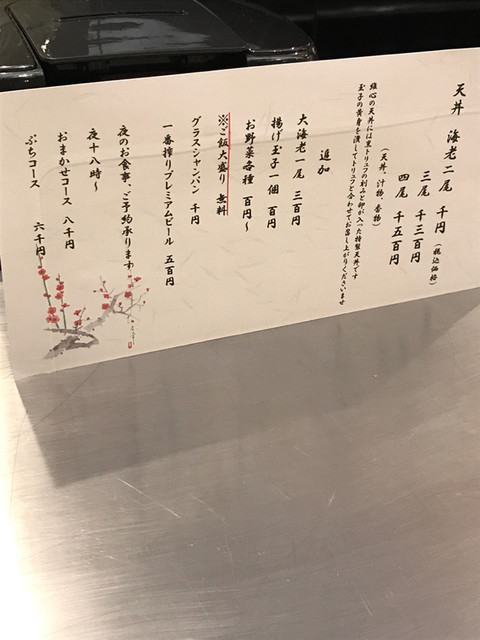 天丼 海老二尾 千円 (税込価格)
三尾 千三百円
四尾 千五百円
(天丼、汁物、香物)
雄心の天丼には黒トリュフの刻みと卵が入った特製天丼です
玉子の黄身を潰してトリュフと合わせてお召し上がりくださいませ
追加
大海老一尾 三百円
揚げ玉子一個 百円
お野菜各種 百円~
※ご飯大盛り 無料
グラスシャンパン 千円
一番搾りプレミアムビール 五百円
夜のお食事、ご予約承ります
夜十八時~
おまかせコース 八千円
ぷちコース 六千円